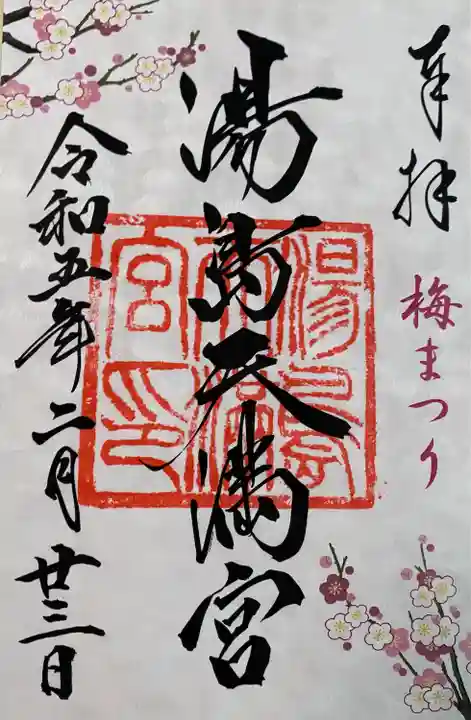 奉拝
梅まつり
湯島天満宮
湯島天満宮印
令和五年二月廿三日